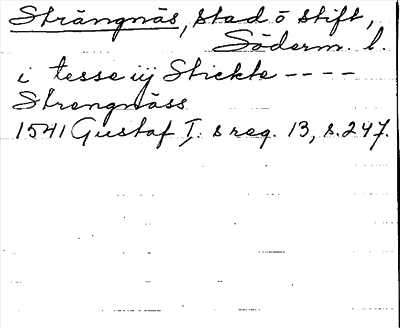 Strängnäs, stad ö stift,
Söderm. l.
i tesse iij Stickte ----
Strengnäss
1541 Gustaf I: s reg. 13, s. 247.